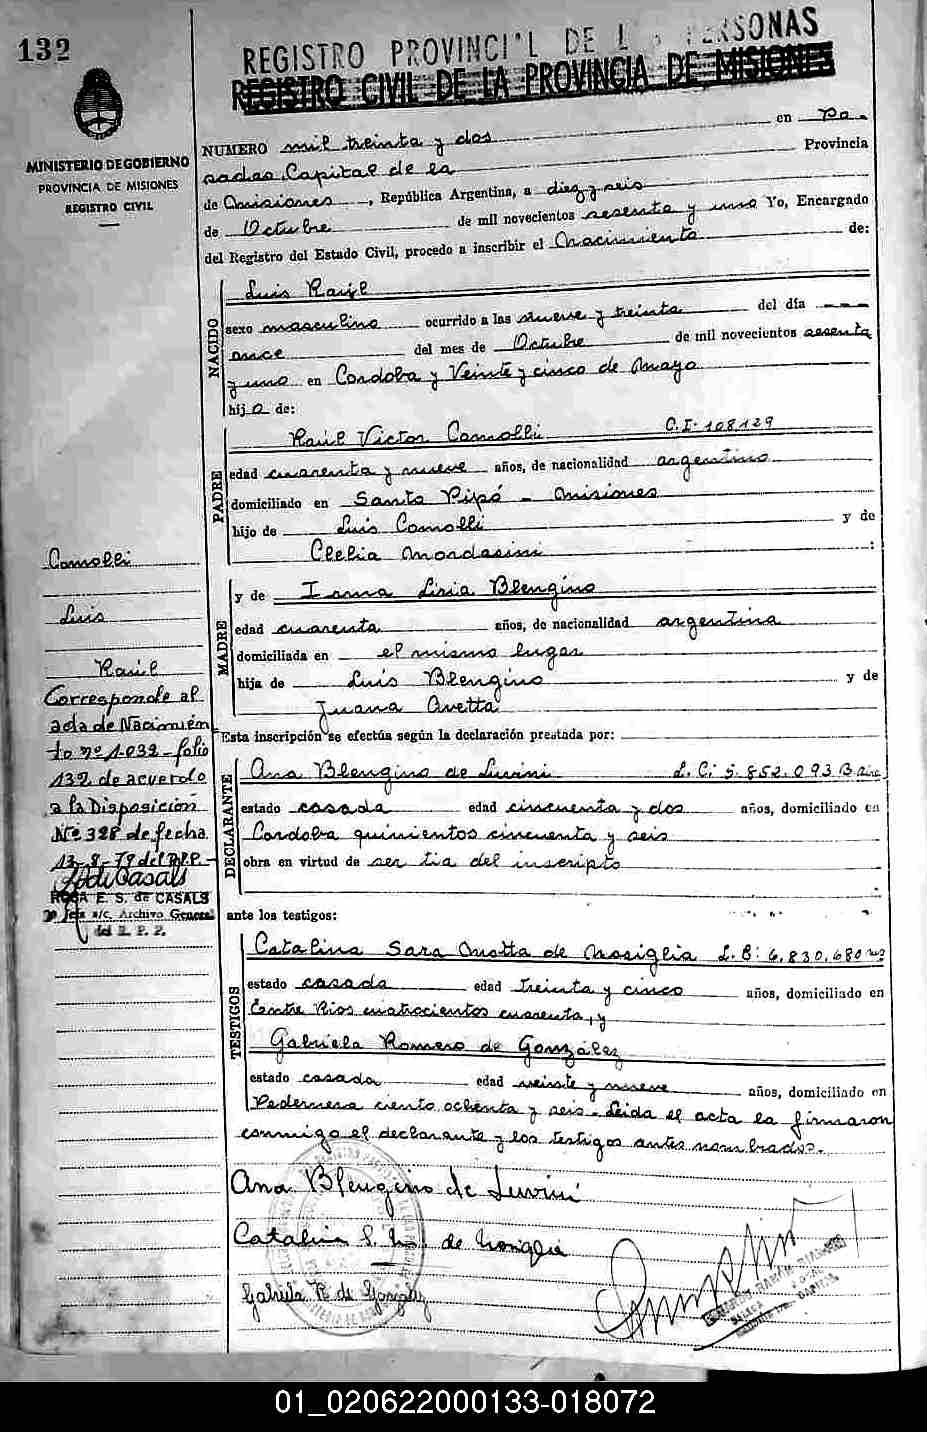 132
REGISTRO PROVINCI L DE L S PERSONAS
REGISTRO CIVIL DE LA PROVINCIA DE MISIONES
MINISTERIO DE GOBIERNO
PROVINCIA DE MISIONES
REGISTRO CIVIL
NUMERO mil treinta y dos en Po-
sadas, Capital de la Provincia
de Misiones, República Argentina, a diez y seis
de Octubre de mil novecientos sesenta y uno Yo, Encargado
del Registro del Estado Civil, procedo a inscribir el Nacimiento de:
NACIDO
Luis Raúl
sexo masculino ocurrido a las nueve y treinta del día
once del mes de Octubre de mil novecientos sesenta
y uno en Cordoba y Veinte y cinco de Mayo
hijo de:
PADRE
Raúl Victor Comolli C.I. 108129
edad cuarenta y nueve años, de nacionalidad argentino
domiciliado en Santo Pipó - Misiones
hijo de Luis Comolli y de
Clelia Mordasini :
MADRE
y de Irma Liria Blengino
edad cuarenta años, de nacionalidad argentina
domiciliada en el mismo lugar
hija de Luis Blengino y de
Juana Avetta
Esta inscripción se efectúa según la declaración prestada por:
DECLARANTE
Ana Blengino de Luvini L.C. 5.852.093
estado casada edad cincuenta y dos años, domiciliado en
Cordoba quinientos cincuenta y seis
obra en virtud de ser tia del inscripto
ante los testigos:
TESTIGOS
Catalina Sara Motta de Nosiglia L.C: 6.830.680
estado casada edad treinta y cinco años, domiciliado en
Entre Rios cuatrocientos cuarenta, y
Gabriela Romero de González
estado casada edad veinte y nueve años, domiciliado en
Pedernera ciento ochenta y seis. Leida el acta la firmaron
conmigo el declarante y los testigos antes nombrados.
Ana Blengino de Luvini
Catalina S. M. de Nosiglia
Gabriela R. de González
Comolli
Luis
Raúl
Corresponde al
acta de Nacimien
to nº 1.032 - folio
132 de acuerdo
a la Disposición
Nº 328 de fecha
13-8-79 del R.P.P.-
ROSA E. S. de CASALS
Jefa a/c. Archivo General
del R. P. P.
01_020622000133-018072